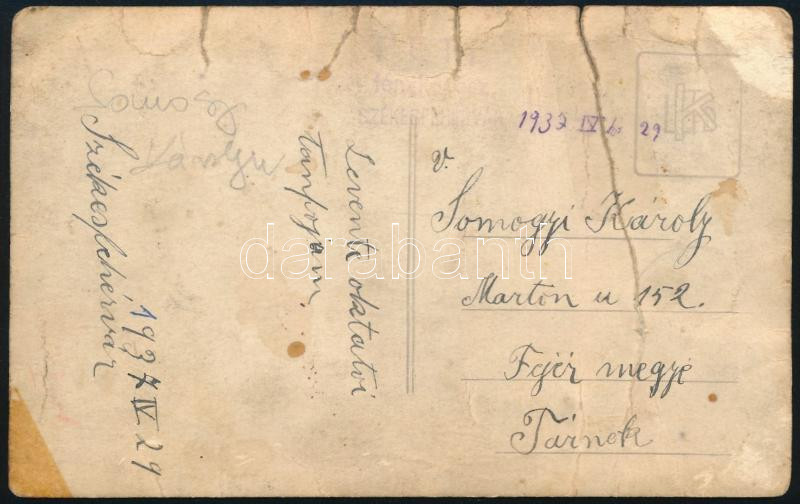 Somogyi
Károly
Székesfehérvár
1937 IV 29
Levente oktatói
tanfojam
1937 IV h. 29
v.
Somogyi Károly
Marton u 152.
Fejér megye
Tárnok
darabanth